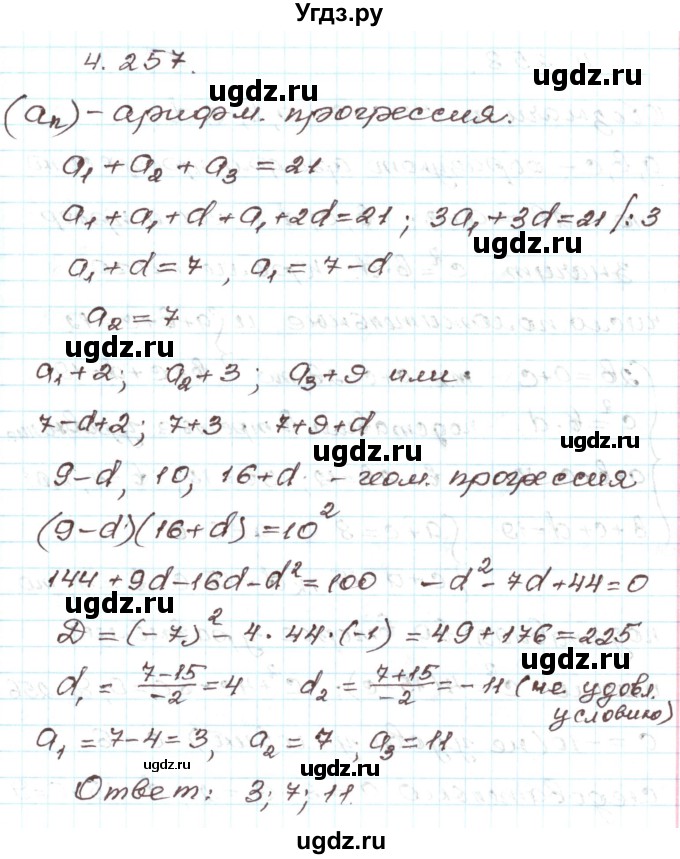 Угдз.ру
4.257.
ugdz.ru ugdz.ru
(aₙ) - арифм. прогрессия.
a₁ + a₂ + a₃ = 21
ugdz.ru
a₁ + a₁ + d + a₁ + 2d = 21; 3a₁ + 3d = 21 /: 3
ugdz.ru
a₁ + d = 7, a₁ = 7 - d
a₂ = 7
ugdz.ru
a₁ + 2; a₂ + 3; a₃ + 9 или:
ugdz.ru
7-d+2; 7+3 7+9+d
ugdz.ru
9-d, 10; 16+d - геом. прогрессия
ugdz.ru
(9-d)(16+d) = 10²
144 + 9d - 16d - d² = 100 -d² - 7d + 44 = 0
ugdz.ru ugdz.ru
D = (-7)² - 4·44·(-1) = 49 + 176 = 225
ugdz.ru
d₁ = (7-15)/-2 = 4 d₂ = (7+15)/-2 = -11 (не удовл. условию)
ugdz.ru
a₁ = 7-4 = 3, a₂ = 7; a₃ = 11
ugdz.ru ugdz.ru
Ответ: 3; 7; 11.
ugdz.ru